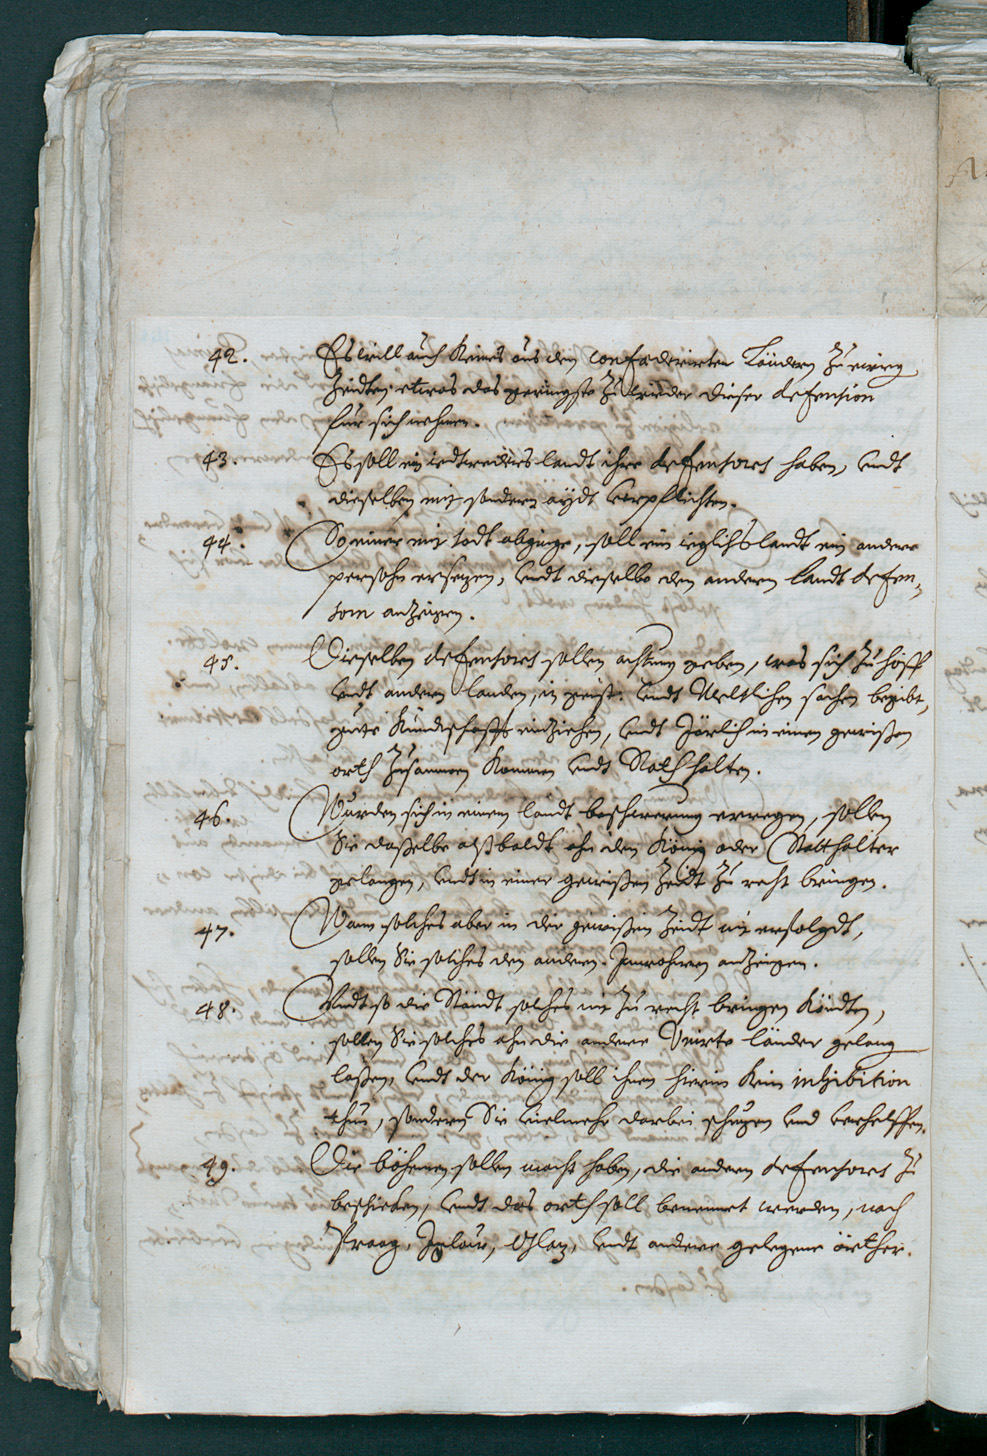 42. Es will auch Keines aus den confœderirten Ländern Zu ewigen
Zeidten etwas das geringste Zu wieder dieser defension
für sich nehmen.
43. Es soll ein iedtwederes landt ihre defensores haben, vndt
dieselben mit sonderen aÿdt verpflichten.
44. So einer mit todt abginge, soll ein ieglichs landt ein andere
persohn ersezen, vndt dieselbe den anderen landt defen-
sorn anzeigen.
45. Dieselben defensores sollen achtung geben, was sich Zu hoff
vndt anderen landen, in geist: vndt Weltlichen sachen begibt,
gute Kundtschafft einziehen, vndt Järlich in einen gewißen
orth Zusammen Kommen vndt Rath halten.
46. Wurden sich in einem landt beschwerung erregen, sollen
Sie daßelbe alßbaldt ahn den König oder Statthalter
gelangen, vndt in einer gewißen Zeidt Zu recht bringen.
47. Wann solches aber in der gewißen Zeidt nit erfolgdt,
sollen Sie solches den anderen Inwohnern anzeigen.
48. Vndt so die Ständt solches nit Zu recht bringen Köndten,
sollen Sie solches ahn die andere Vnirte länder gelang
laßen, vndt der König soll ihnen hierin Kein inhibition
thun, sondern Sie vielmehr darbei schuzen vnd verhelffen.
49. Die böhmen sollen macht haben, die andern defensores Zu
beschieben, vndt das orth soll benennet werden, nach
Praag, Iglaw, Glaz, vndt andere gelegene örther.